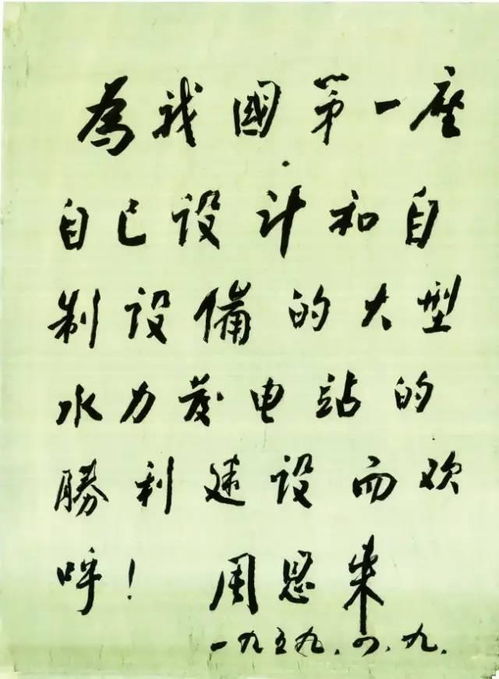 為我國第一座
自己设计和自
制设備的大型
水力发电站的
勝利建设而欢
呼！ 周恩来
一九五九.四.九.